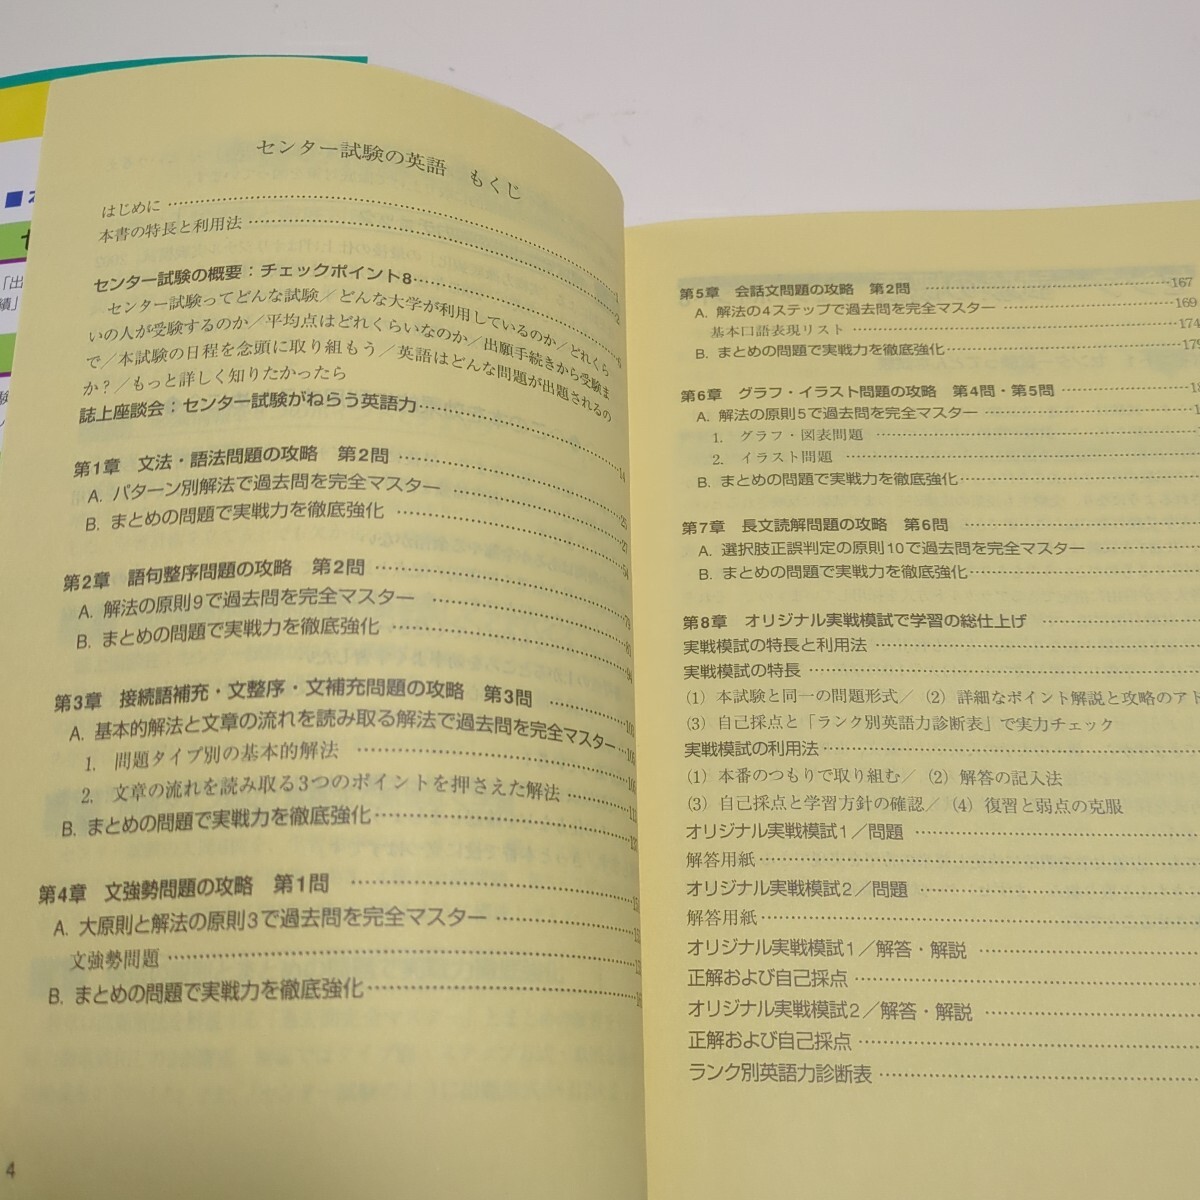 センター試験の英語　もくじ
はじめに
本書の特長と利用法
センター試験の概要：チェックポイント8
センター試験ってどんな試験／どんな大学が利用しているのか／どれくら
いの人が受験するのか／平均点はどれくらいなのか／出願手続きから受験ま
で／本試験の日程を念頭に取り組もう／英語はどんな問題が出題されるの
か？／もっと詳しく知りたかったら
誌上座談会：センター試験がねらう英語力 14
第1章　文法・語法問題の攻略　第2問
A. パターン別解法で過去問を完全マスター 27
B. まとめの問題で実戦力を徹底強化 54
第2章　語句整序問題の攻略　第2問 79
A. 解法の原則9で過去問を完全マスター 81
B. まとめの問題で実戦力を徹底強化 94
第3章　接続語補充・文整序・文補充問題の攻略　第3問
A. 基本的解法と文章の流れを読み取る解法で過去問を完全マスター
1. 問題タイプ別の基本的解法
2. 文章の流れを読み取る3つのポイントを押さえた解法
B. まとめの問題で実戦力を徹底強化
第4章　文強勢問題の攻略　第1問
A. 大原則と解法の原則3で過去問を完全マスター
文強勢問題
B. まとめの問題で実戦力を徹底強化
4
第5章　会話文問題の攻略　第2問 167
A. 解法の4ステップで過去問を完全マスター 169
基本口語表現リスト 174
B. まとめの問題で実戦力を徹底強化 179
第6章　グラフ・イラスト問題の攻略　第4問・第5問
A. 解法の原則5で過去問を完全マスター
1. グラフ・図表問題
2. イラスト問題
B. まとめの問題で実戦力を徹底強化
第7章　長文読解問題の攻略　第6問
A. 選択肢正誤判定の原則10で過去問を完全マスター
B. まとめの問題で実戦力を徹底強化
第8章　オリジナル実戦模試で学習の総仕上げ
実戦模試の特長と利用法
実戦模試の特長
(1) 本試験と同一の問題形式／ (2) 詳細なポイント解説と攻略のアド
(3) 自己採点と「ランク別英語力診断表」で実力チェック
実戦模試の利用法
(1) 本番のつもりで取り組む／ (2) 解答の記入法
(3) 自己採点と学習方針の確認／ (4) 復習と弱点の克服
オリジナル実戦模試1／問題
解答用紙
オリジナル実戦模試2／問題
解答用紙
オリジナル実戦模試1／解答・解説
正解および自己採点
オリジナル実戦模試2／解答・解説
正解および自己採点
ランク別英語力診断表